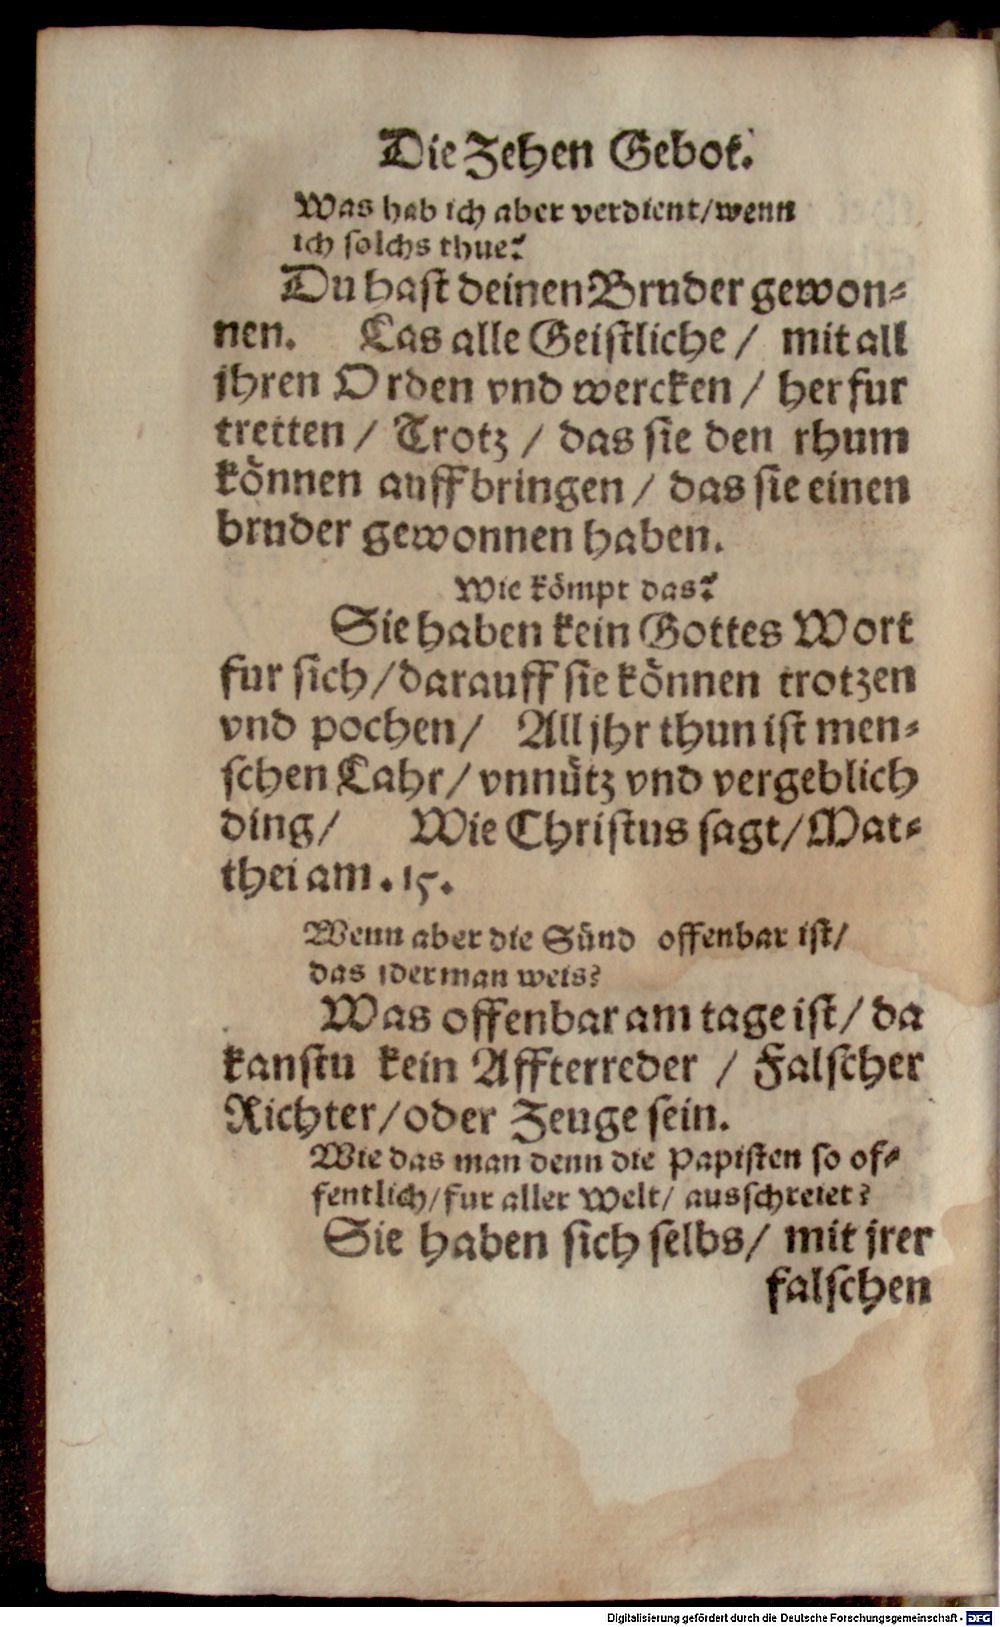 Die Zehen Gebot.
Was hab ich aber verdient/wenn
ich solchs thue?
Du hast deinen Bruder gewon⸗
nen. Las alle Geistliche / mit all
jhren Orden vnd wercken / her fur
tretten / Trotz / das sie den rhum
können auffbringen / das sie einen
bruder gewonnen haben.
Wie kömpt das?
Sie haben kein Gottes Wort
fur sich/darauff sie können trotzen
vnd pochen/ All jhr thun ist men⸗
schen Lahr/vnnütz vnd vergeblich
ding/ Wie Christus sagt/Mat⸗
thei am .15.
Wenn aber die Sünd offenbar ist/
das iderman weis?
Was offenbar am tage ist/ da
kanstu kein Affterreder / Falscher
Richter/oder Zeuge sein.
Wie das man denn die Papisten so of⸗
fentlich/fur aller Welt/ ausschreiet?
Sie haben sich selbs/ mit jrer
falschen
Digitalisierung gefördert durch die Deutsche Forschungsgemeinschaft - DFG